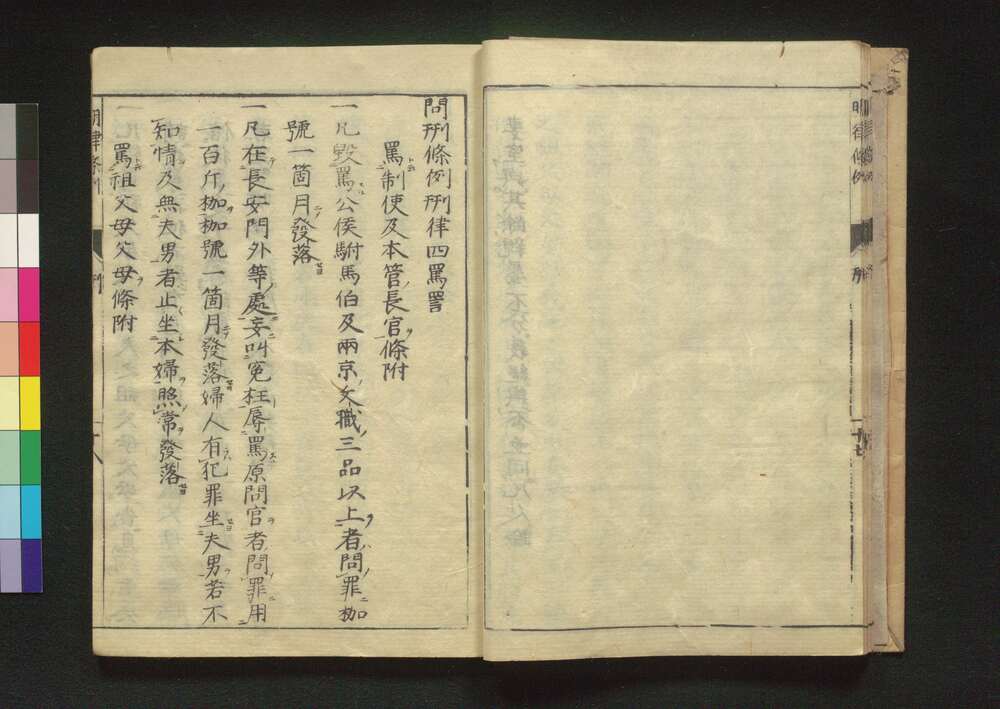 明律條例
刑
十七
問刑條例刑律四罵詈
罵制使及本管長官條附
一凢毀罵公侯駙馬伯及兩京文職三品以上者問罪枷
號一箇月發落
一凢在長安門外等處妄叫冤枉辱罵原問官者問罪用
一百斤枷枷號一箇月發落婦人有犯罪坐夫男若不
知情及無夫男者止坐本婦照常發落
一罵祖父母父母條附
明律條例
刑